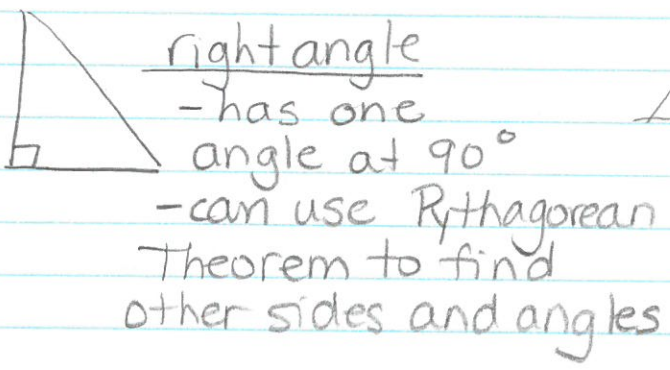 right angle
-has one
angle at 90°
-can use Pythagorean
Theorem to find
other sides and angles